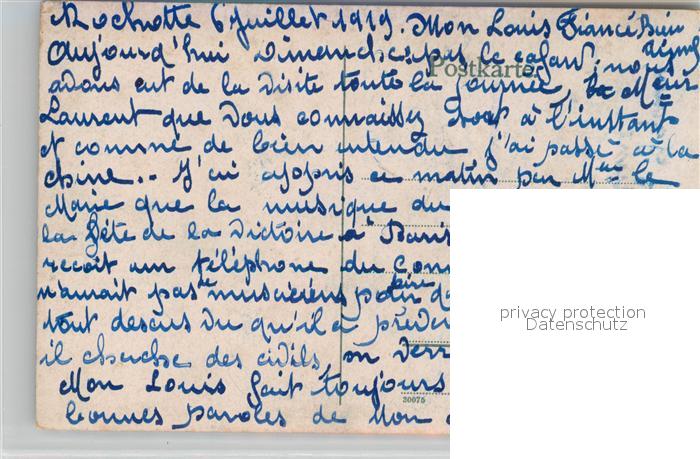 Rochotte 6 Juillet 1919. Mon Louis Fiancé Bien aimé
Aujourd'hui Dimanche pas le cafard. nous
Postkarte
avons eut de la visite toute la journée, Mr
Laurent que vous connaissez sort à l'instant
et comme de bien entendu j'ai passé à la
chine.. J'ai appris ce matin par Mme le
Maire que la musique du
la fête de la Victoire à Paris
recoit un téléphone du
n'aurait pas musiciens pour
tout dessus vu qu'il a
il cherche des civils, on verr
Mon Louis fait toujours
bonnes paroles de Mon
30075
privacy protection
Datenschutz